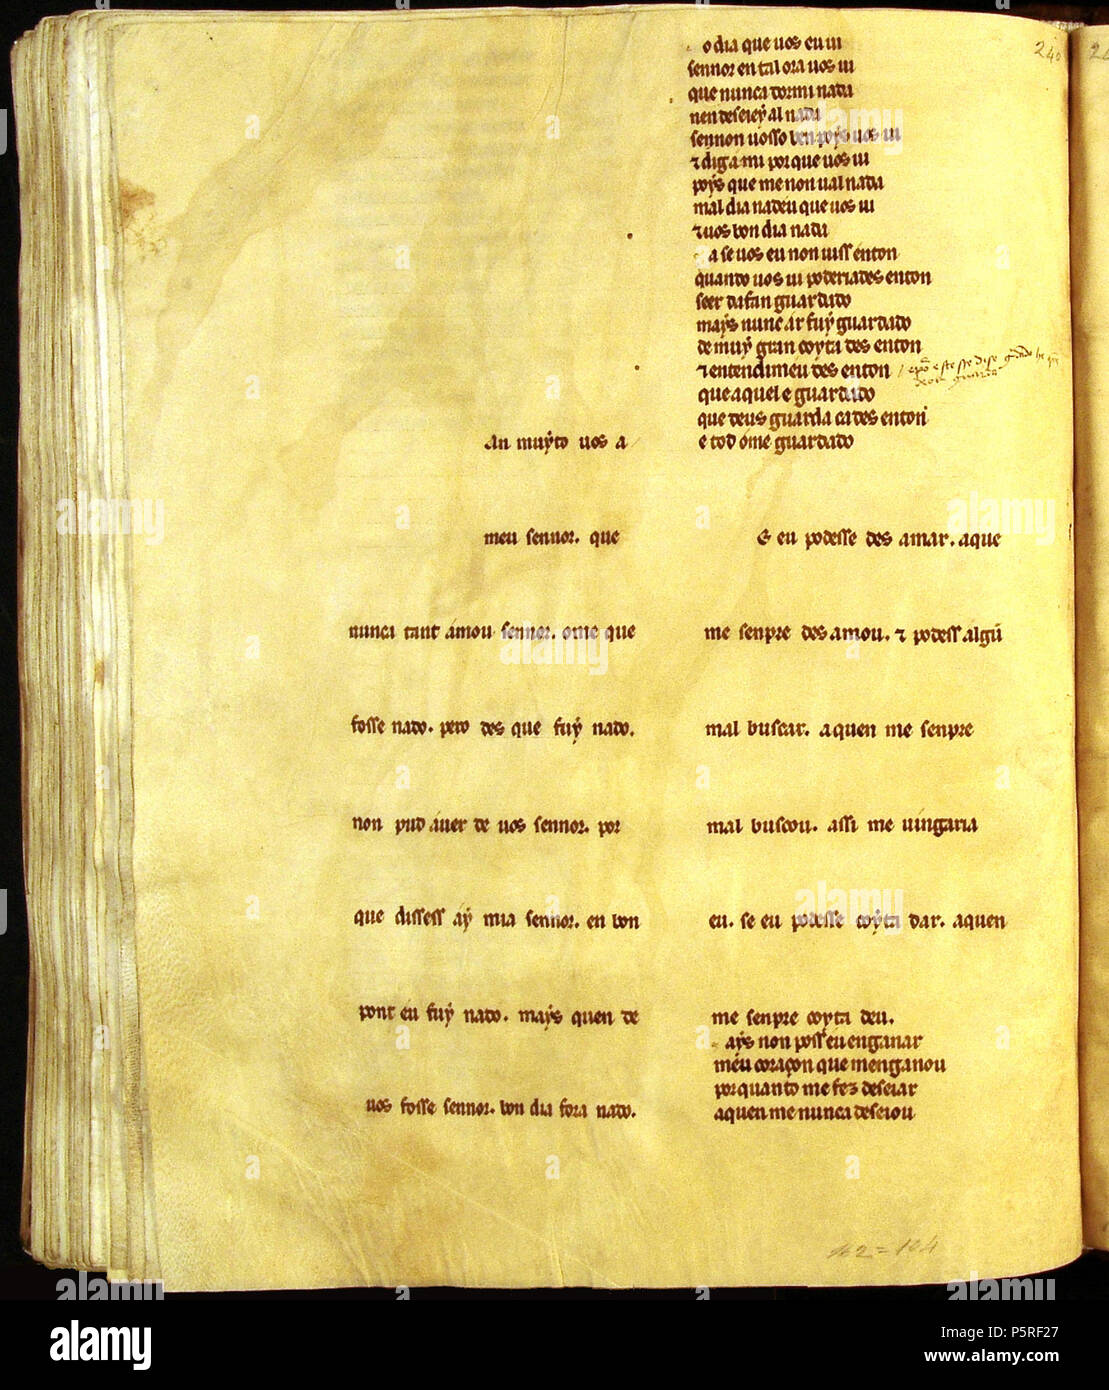 an muyto uos a
meu sennor. que
nunca tant ámou sennor. ome que
fosse nado. pero des que fuy nado.
non pud áuer de uos sennor. por
que dissess aẏ mia sennor. en bon
pont eu fuẏ nado. maẏs quen de
uos fosse sennor. bon dia fora nado.
240
o dia que uos eu ui
sennor en tal ora uos ui
que nunca dormi nada
nen deseieẏ al nada
sennon uosso ben poẏs uos ui
⁊ dig a mi por que uos ui
poẏs que me non ual nada
mal dia nadeu que uos ui
⁊ uos bon dia nada
a se uos eu non uiss enton
quando uos ui poderiades enton
seer dafan guardado
maẏs nunc ar fuẏ guardado
de muẏ gran coẏta des enton
⁊ entendimeu des enton
que aquel e guardado
que deus guarda ca des enton
e tod óme guardado
e eu podesse des amar. aque
me senpre des amou. ⁊ podess algũ
mal buscar. aquen me senpre
mal buscou. assi me uingaria
eu. se eu podesse coẏta dar. aquen
me senpre coẏta deu.
aẏs non poss eu enganar
méu coraçon que menganou
por quanto me fez deseiar
aquen me nunca deseiou
= 104
alamy
Image ID: P5RF27
www.alamy.com